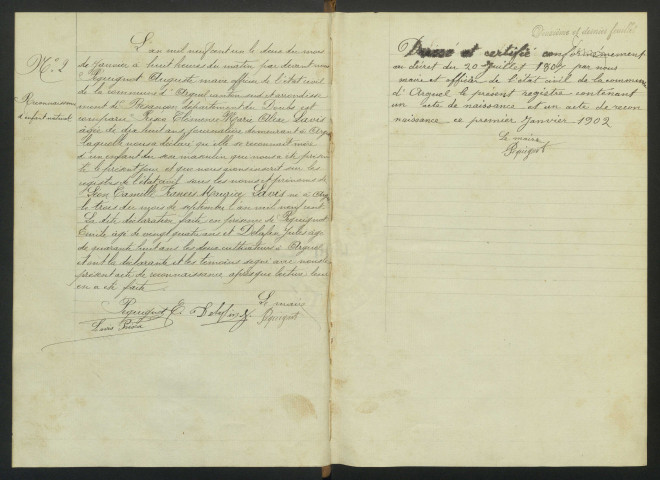 N° 2
Reconnaissance
d'enfant naturel
L'an mil neuf cent un le deux du mois
de janvier à huit heures du matin par devant nous
Péquignot Auguste maire officier de l'état civil
de la commune d'Arguel canton sud et arrondissement
de Besançon département du Doubs est
comparue Clémence Marie
âgée de dix huit ans journalière demeurant à Arguel
laquelle nous a déclaré qu'elle se reconnaît mère
d'un enfant du sexe masculin qui nous a été présenté
le présent jour et que nous avons inscrit sur les
registres de l'état civil sous les noms et prénoms de
Camille Maurice né à Arguel
le trois du mois de septembre l'an mil neuf cent
La dite déclaration faite en présence de Péquignot
Emile âgé de vingt quatre ans et Jules âgé
de quarante huit ans les deux cultivateurs à Arguel
et ont la déclarante et les témoins signé avec nous le
présent acte de reconnaissance après que lecture leur
en a été faite
Péquignot E.
Le maire
Péquignot
Deuxième et dernier feuillet
Dressé et certifié conformément
au décret du 20 Juillet 1807 par nous
maire et officier de l'état civil de la commune
d'Arguel le présent registre contenant
un acte de naissance et un acte de recon
naissance ce premier Janvier 1902
Le maire
Péquignot